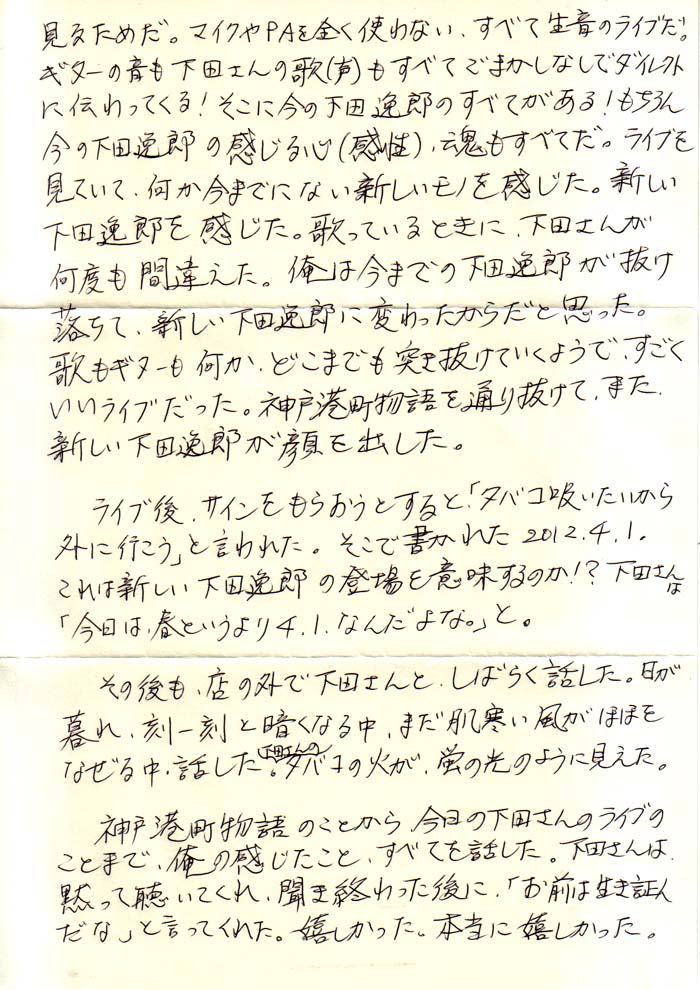 見るためだ。マイクやPAを全く使わない、すべて生音のライブだ。
ギターの音も下田さんの歌(声)もすべてごまかしなしでダイレクト
に伝わってくる!そこに今の下田逸郎のすべてがある!もちろん
今の下田逸郎の感じる心(感性)、魂もすべてだ。ライブを
見ていて、何か今までにない新しいモノを感じた。新しい
下田逸郎を感じた。歌っているときに、下田さんが
何度も間違えた。俺は今までの下田逸郎が抜け
落ちて、新しい下田逸郎に変わったからだと思った。
歌もギターも何か、どこまでも突き抜けていくようで、すごく
いいライブだった。神戸港町物語を通り抜けて、また、
新しい下田逸郎が顔を出した。
ライブ後、サインをもらおうとすると、「タバコ吸いたいから
外に行こう」と言われた。そこで書かれた2012.4.1.
これは新しい下田逸郎の登場を意味するのか!?下田さんは
「今日は、春というより4.1.なんだよな。」と。
その後も、店の外で下田さんと、しばらく話した。日が
暮れ、刻一刻と暗くなる中、まだ肌寒い風がほほを
なぜる中、話した。下田さんのタバコの火が、蛍の光のように見えた。
神戸港町物語のことから、今日の下田さんのライブの
ことまで、俺の感じたこと、すべてを話した。下田さんは、
黙って聴いてくれ、聞き終わった後に、「お前は生き証人
だな」と言ってくれた。嬉しかった。本当に嬉しかった。